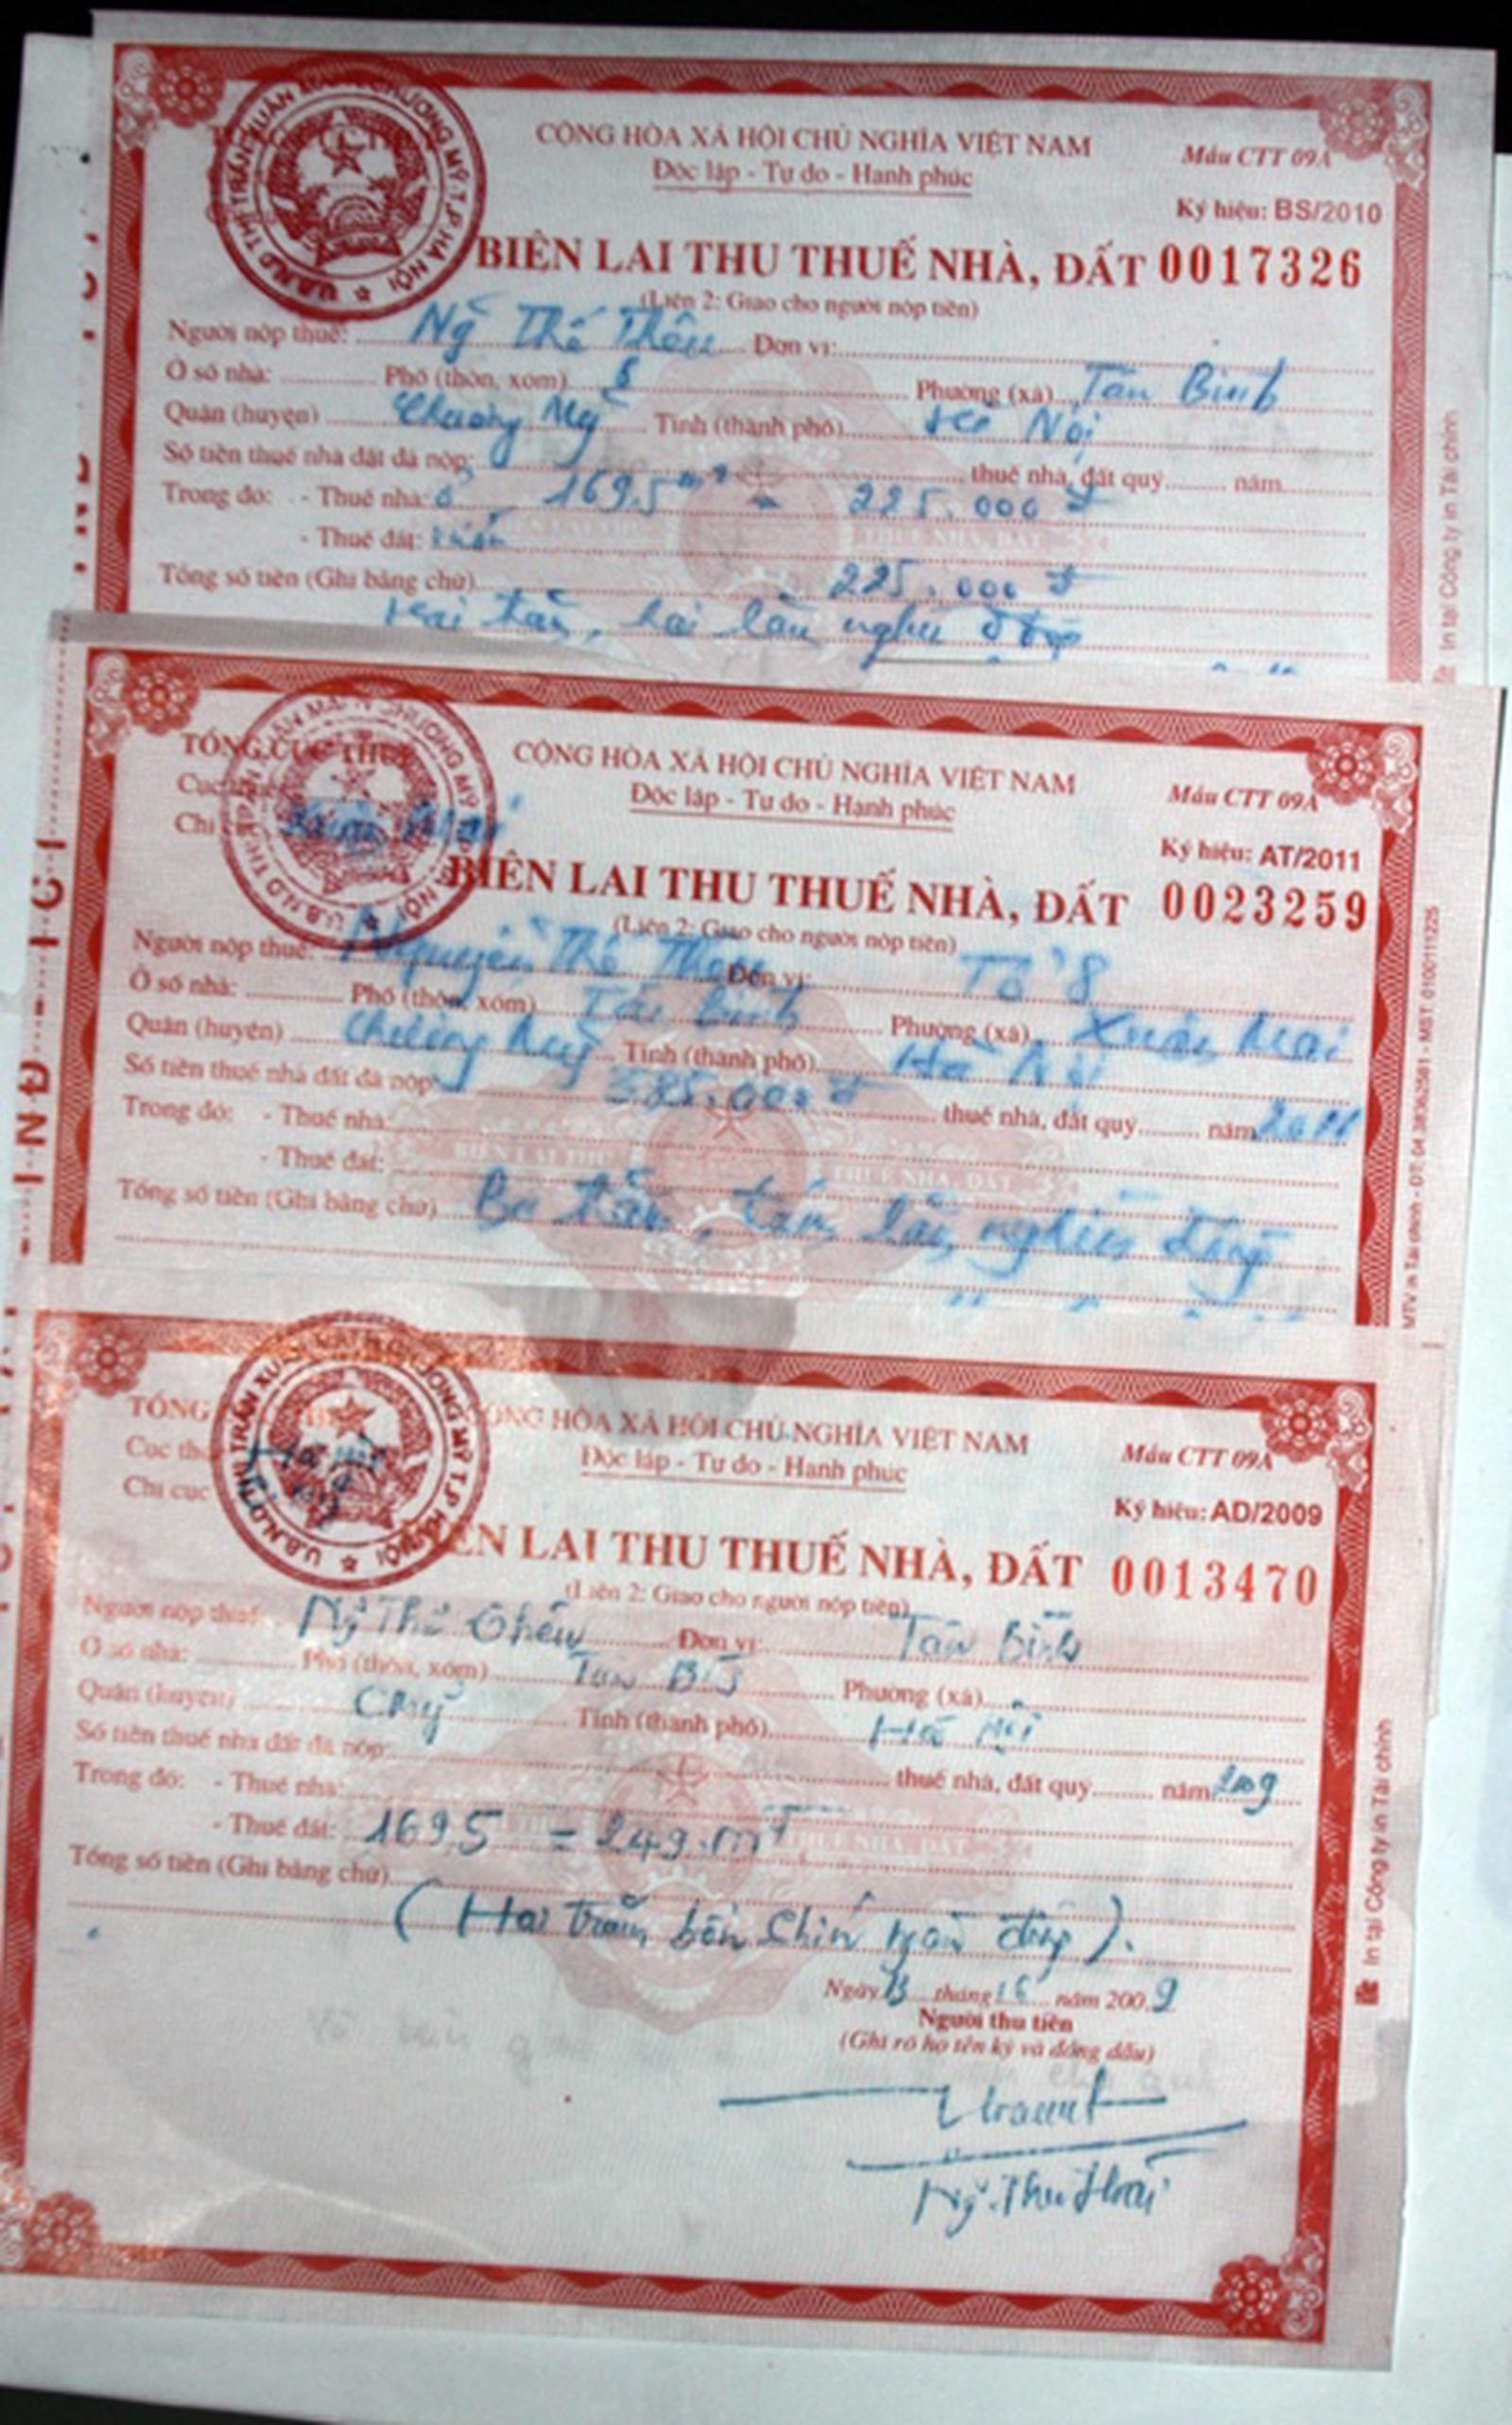 CỘNG HÒA XÃ HỘI CHỦ NGHĨA VIỆT NAM
Độc lập - Tự do - Hạnh phúc
Mẫu CTT 09A
Ký hiệu: BS/2010
BIÊN LAI THU THUẾ NHÀ, ĐẤT 0017326
(Liên 2: Giao cho người nộp tiền)
Người nộp thuế: Ng Thế Thêu Đơn vị:
Ở số nhà: Phố (thôn, xóm) 8 Phường (xã) Tân Bình
Quận (huyện) Chương Mỹ Tỉnh (thành phố) Hà Nội
Số tiền thuế nhà đất đã nộp: thuế nhà, đất quý năm
Trong đó: - Thuế nhà: 1695 m² = 225.000 đ
- Thuế đất:
Tổng số tiền (Ghi bằng chữ) 225.000 đ
Hai trăm, hai lăm nghìn đồng
In tại Công ty in Tài chính
TỔNG CỤC THUẾ
Cục thuế
Chi Xuân Mai
CỘNG HÒA XÃ HỘI CHỦ NGHĨA VIỆT NAM
Độc lập - Tự do - Hạnh phúc
Mẫu CTT 09A
Ký hiệu: AT/2011
BIÊN LAI THU THUẾ NHÀ, ĐẤT 0023259
(Liên 2: Giao cho người nộp tiền)
Người nộp thuế: Nguyễn Thế Thêu Đơn vị: Tổ 8
Ở số nhà: Phố (thôn, xóm) Tân Bình Phường (xã) Xuân Mai
Quận (huyện) Chương Mỹ Tỉnh (thành phố) Hà Nội
Số tiền thuế nhà đất đã nộp: 385.000 đ thuế nhà, đất quý năm 2011
Trong đó: - Thuế nhà:
- Thuế đất:
Tổng số tiền (Ghi bằng chữ) Ba trăm, tám lăm nghìn đồng
MTV in Tài chính - ĐT: 04.38362581 - MST: 0100111225
TỔNG
Cục thuế Hà Nội
Chi cục
CỘNG HÒA XÃ HỘI CHỦ NGHĨA VIỆT NAM
Độc lập - Tự do - Hạnh phúc
Mẫu CTT 09A
Ký hiệu: AD/2009
BIÊN LAI THU THUẾ NHÀ, ĐẤT 0013470
(Liên 2: Giao cho người nộp tiền)
Người nộp thuế: Ng Thế Thêu Đơn vị: Tân Bình
Ở số nhà: Phố (thôn, xóm) Tân Bình Phường (xã)
Quận (huyện) C Mỹ Tỉnh (thành phố) Hà Nội
Số tiền thuế nhà đất đã nộp: thuế nhà, đất quý năm 2009
Trong đó: - Thuế nhà:
- Thuế đất: 1695 = 249.m
Tổng số tiền (Ghi bằng chữ)
(Hai trăm bốn chín ngàn đồng).
Ngày 13 tháng năm 2009
Người thu tiền
(Ghi rõ họ tên ký và đóng dấu)
Ng. Thu Hoài
In tại Công ty in Tài chính